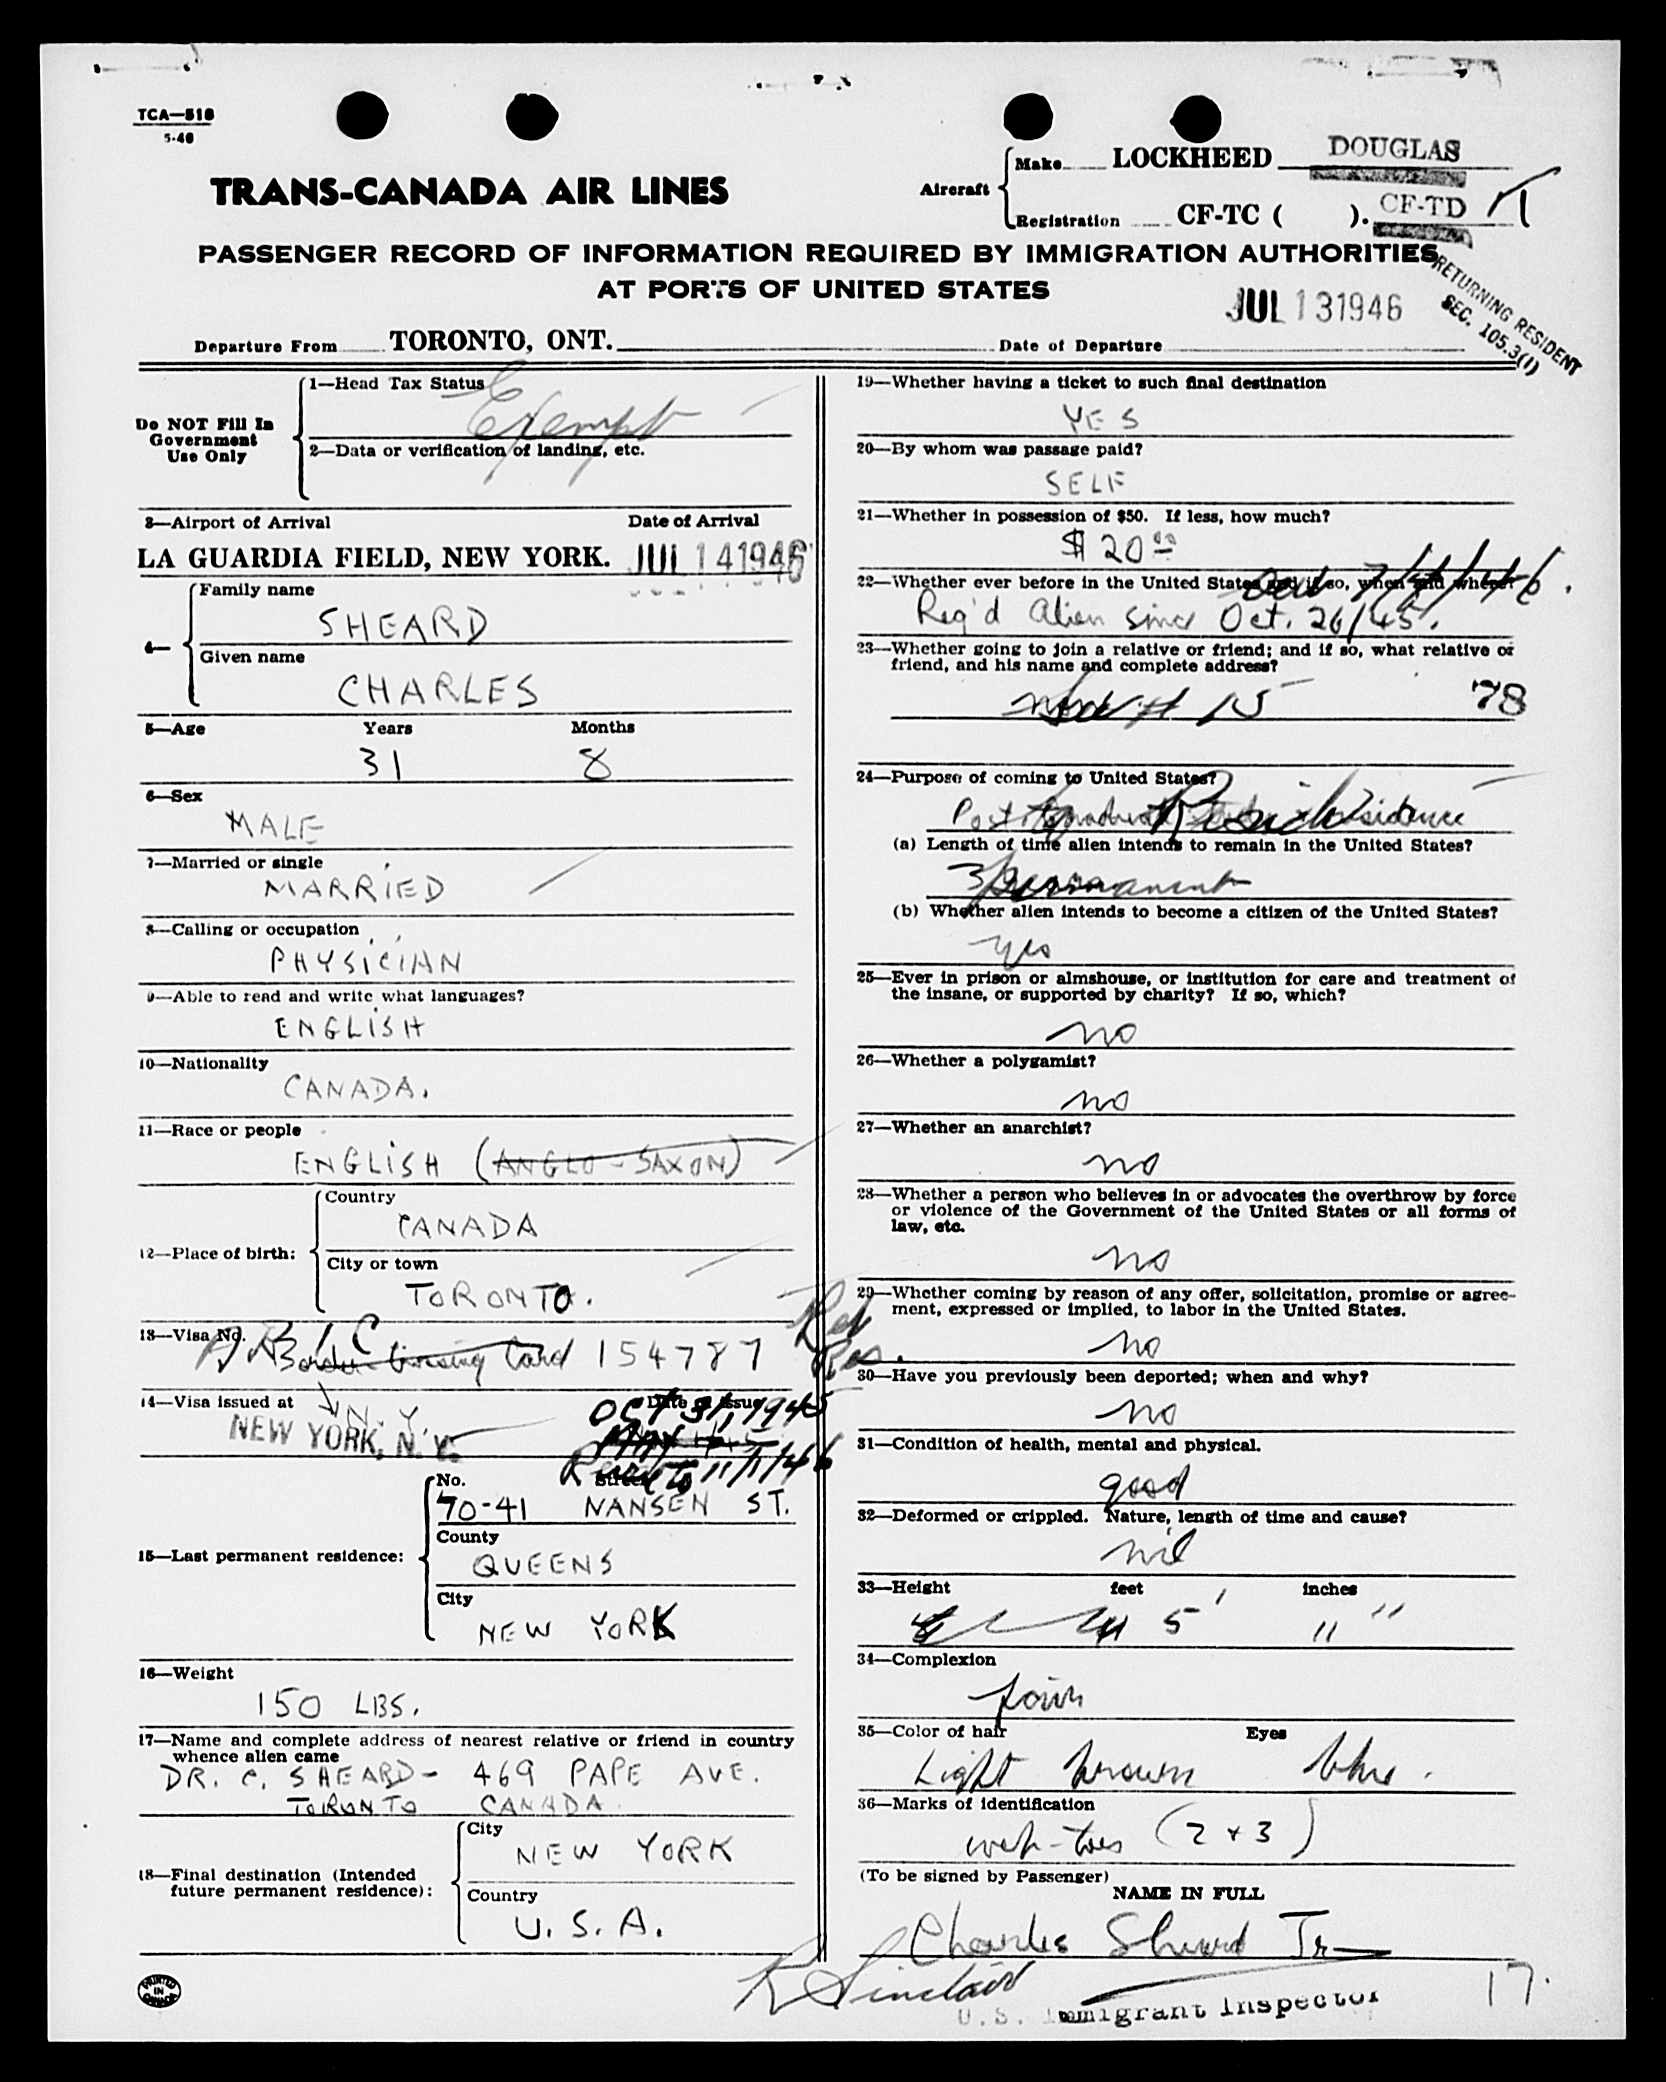 TCA—518
5-46
TRANS-CANADA AIR LINES
Aircraft
Make LOCKHEED DOUGLAS
Registration CF-TC ( ). CF-TD
PASSENGER RECORD OF INFORMATION REQUIRED BY IMMIGRATION AUTHORITIES
AT PORTS OF UNITED STATES
JUL 131946
RETURNING RESIDENT
SEC. 105.3(1)
Departure From TORONTO, ONT. Date of Departure
Do NOT Fill In
Government
Use Only
1—Head Tax Status
Exempt
2—Data or verification of landing, etc.
3—Airport of Arrival Date of Arrival
LA GUARDIA FIELD, NEW YORK. JUL 141946
4—
Family name
SHEARD
Given name
CHARLES
5—Age Years Months
31 8
6—Sex
MALE
7—Married or single
MARRIED
8—Calling or occupation
PHYSICIAN
9—Able to read and write what languages?
ENGLISH
10—Nationality
CANADA.
11—Race or people
ENGLISH (ANGLO-SAXON)
12—Place of birth:
Country
CANADA
City or town
TORONTO.
13—Visa No.
Border Crossing Card 154787
Ret
Res.
14—Visa issued at Date of Issue
N.Y.
NEW YORK, N.Y.
OCT 31, 1945
to 11/1/46
15—Last permanent residence:
No. Street
70-41 NANSEN ST.
County
QUEENS
City
NEW YORK
16—Weight
150 LBS.
17—Name and complete address of nearest relative or friend in country
whence alien came
DR. C. SHEARD - 469 PAPE AVE.
TORONTO CANADA
18—Final destination (Intended
future permanent residence):
City
NEW YORK
Country
U.S.A.
PRINTED
IN
CANADA
19—Whether having a ticket to such final destination
YES
20—By whom was passage paid?
SELF
21—Whether in possession of $50. If less, how much?
$20⁰⁰
22—Whether ever before in the United States and if so, when and where?
Reg'd Alien since Oct. 26/45.
23—Whether going to join a relative or friend; and if so, what relative or
friend, and his name and complete address?
# 15 78
24—Purpose of coming to United States?
(a) Length of time alien intends to remain in the United States?
permanent
(b) Whether alien intends to become a citizen of the United States?
yes
25—Ever in prison or almshouse, or institution for care and treatment of
the insane, or supported by charity? If so, which?
no
26—Whether a polygamist?
no
27—Whether an anarchist?
no
28—Whether a person who believes in or advocates the overthrow by force
or violence of the Government of the United States or all forms of
law, etc.
no
29—Whether coming by reason of any offer, solicitation, promise or agree-
ment, expressed or implied, to labor in the United States.
no
30—Have you previously been deported; when and why?
no
31—Condition of health, mental and physical.
good
32—Deformed or crippled. Nature, length of time and cause?
nil
33—Height feet inches
5' 11"
34—Complexion
fair
35—Color of hair Eyes
Light brown blue.
36—Marks of identification
web-toes (2 + 3)
(To be signed by Passenger)
NAME IN FULL
Charles Sheard Jr
R Sinclair
U.S. Immigrant Inspector
17.